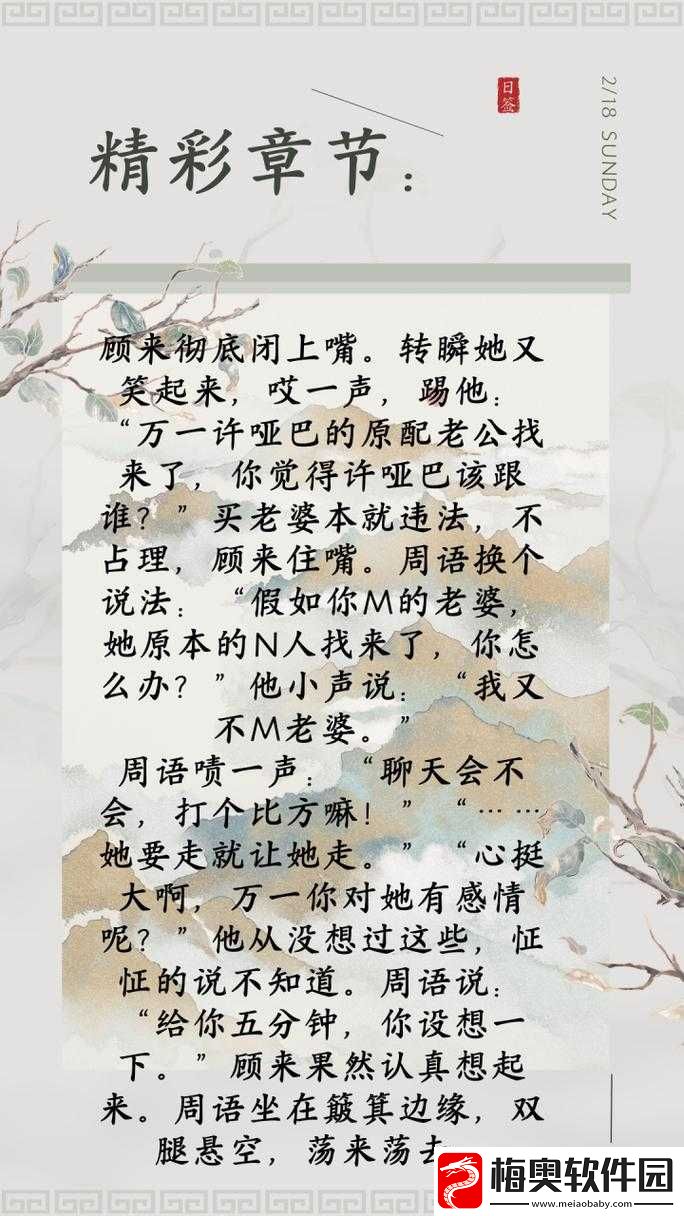 日签
2/18 SUNDAY
精彩章节：
顾来彻底闭上嘴。转瞬她又
笑起来，哎一声，踢他：
“万一许哑巴的原配老公找
来了，你觉得许哑巴该跟
谁？”买老婆本就违法，不
占理，顾来住嘴。周语换个
说法：“假如你M的老婆，
她原本的N人找来了，你怎
么办？”他小声说：“我又
不M老婆。”
周语啧一声：“聊天会不
会，打个比方嘛！”“……
她要走就让她走。”“心挺
大啊，万一你对她有感情
呢？”他从没想过这些，怔
怔的说不知道。周语说：
“给你五分钟，你设想一
下。”顾来果然认真想起
来。周语坐在簸箕边缘，双
腿悬空，荡来荡去
梅奥软件园
www.meiaobaby.com